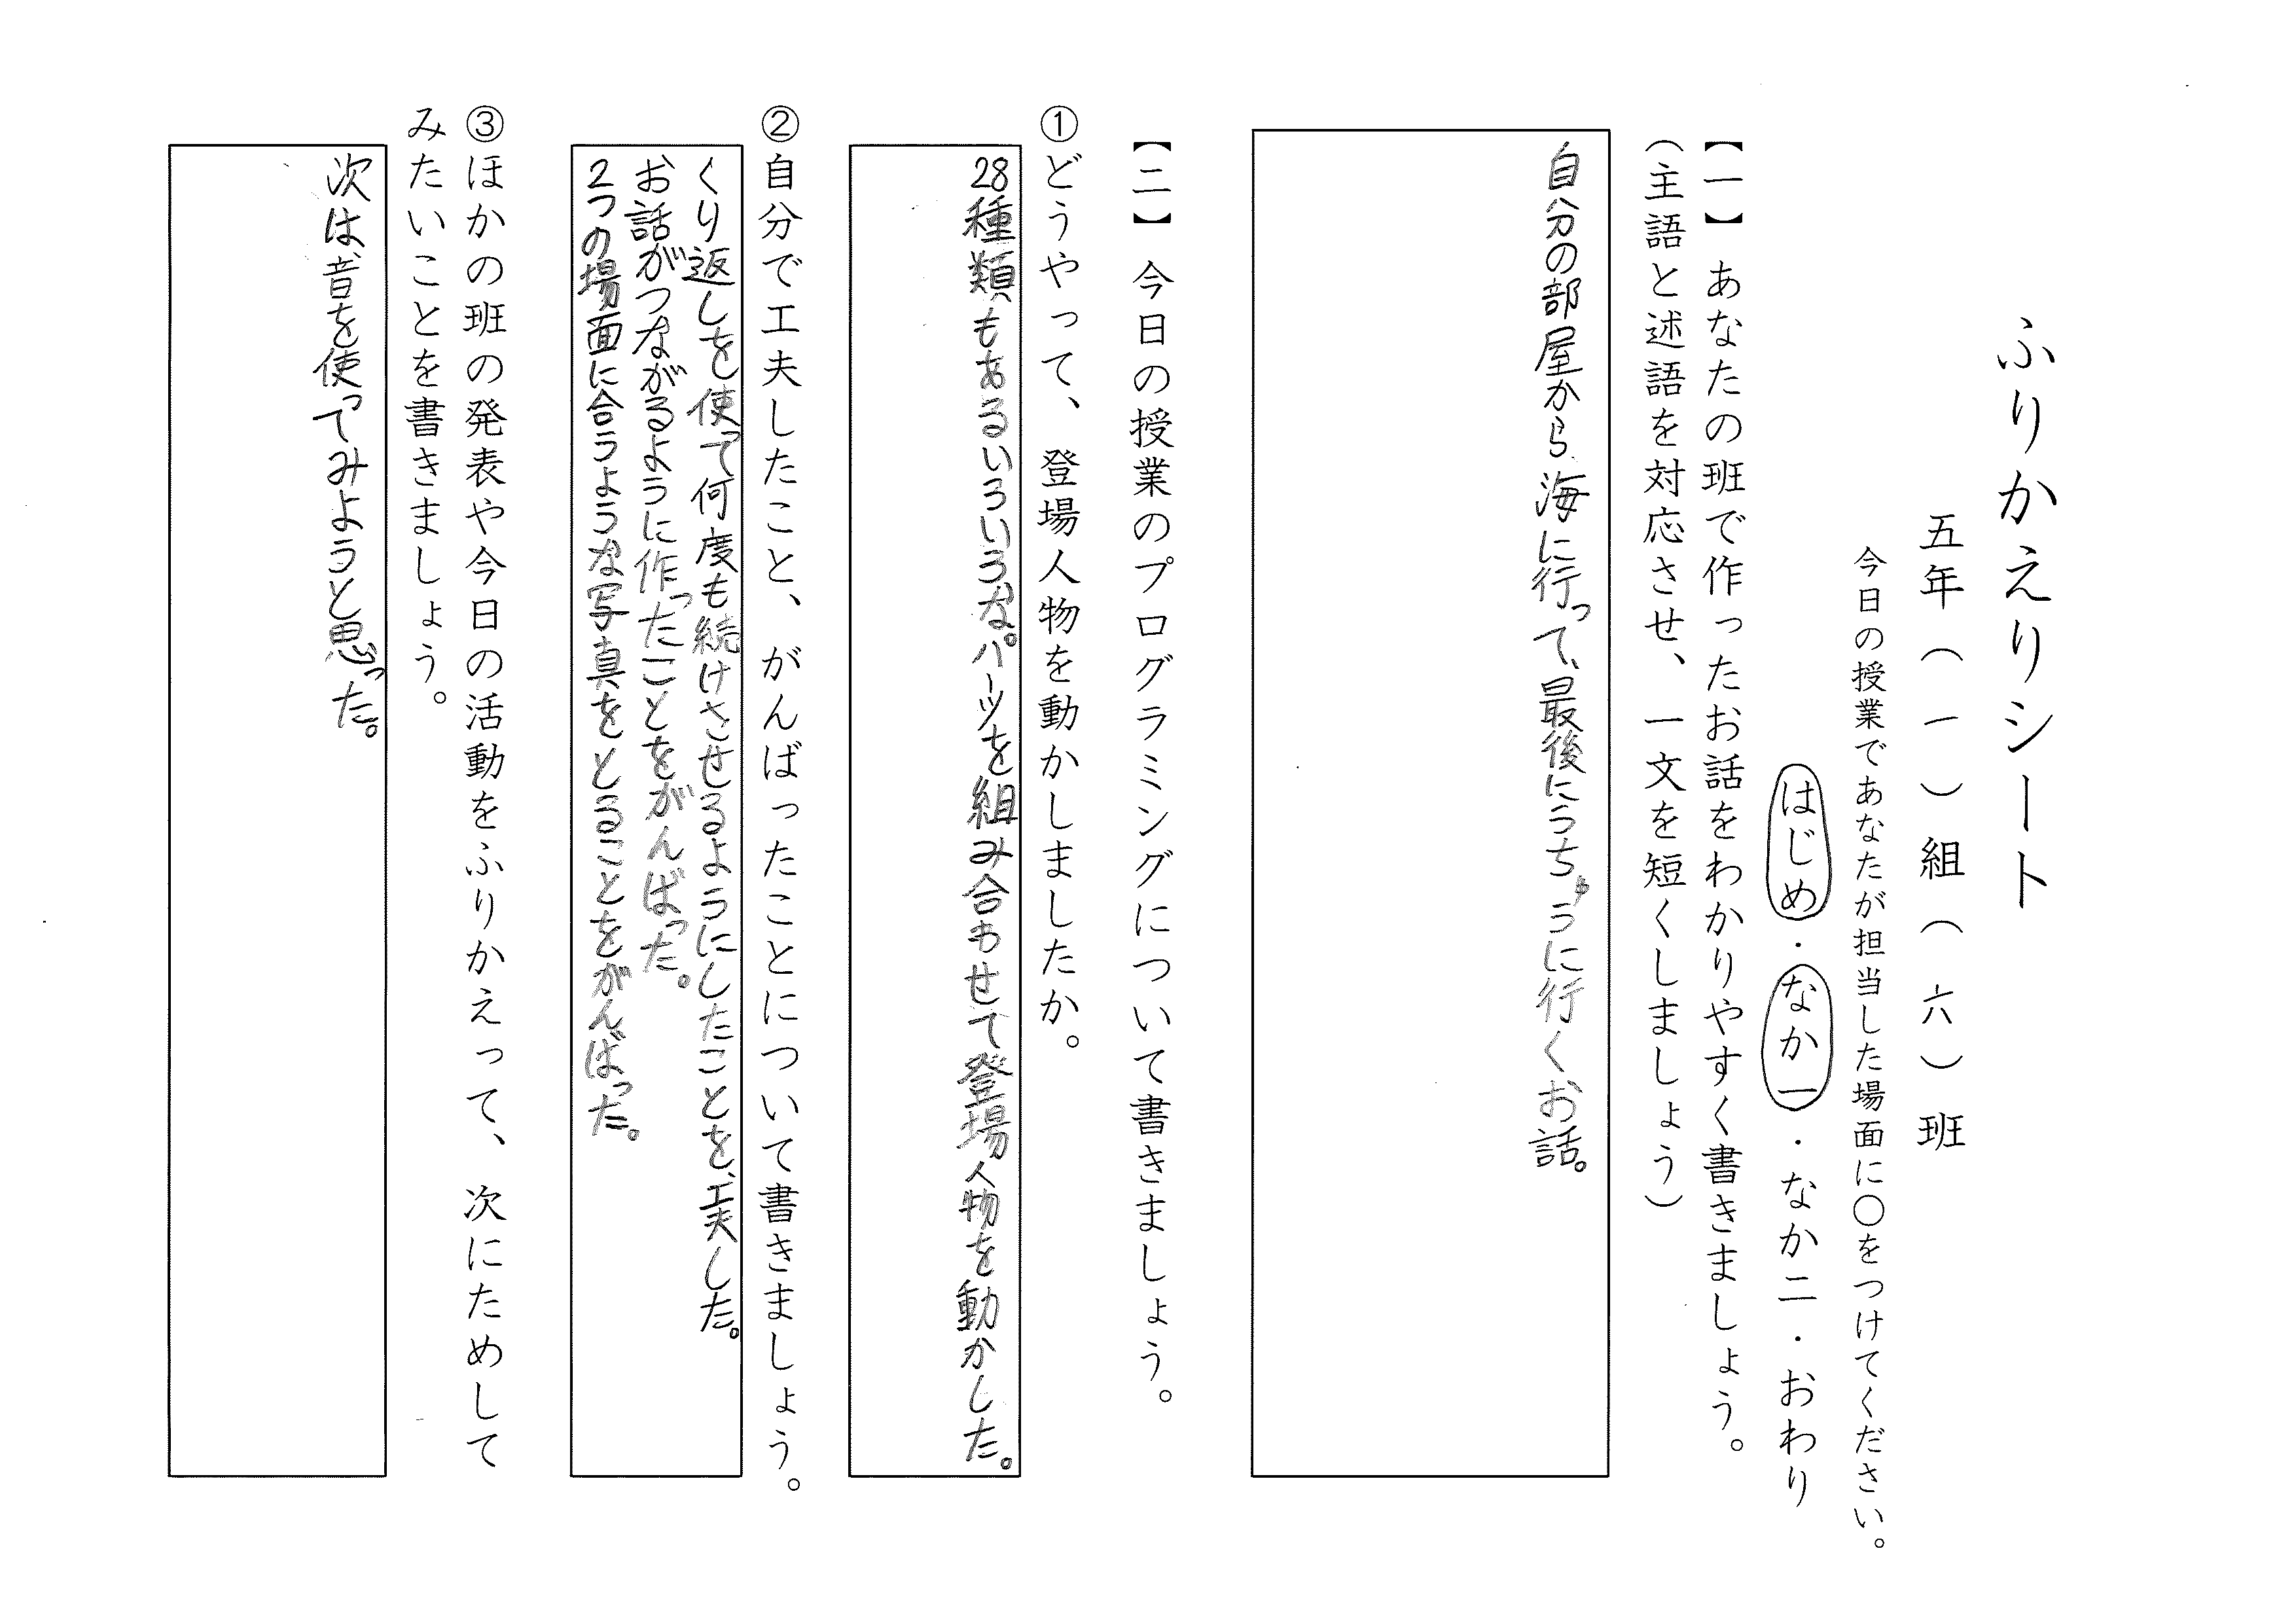 ふりかえりシート
五年（一）組（六）班
今日の授業であなたが担当した場面に〇をつけてください。
はじめ・なか一・なか二・おわり
【一】あなたの班で作ったお話をわかりやすく書きましょう。
（主語と述語を対応させ、一文を短くしましょう）
自分の部屋から海に行って、最後にうちゅうに行くお話。
【二】今日の授業のプログラミングについて書きましょう。
①どうやって、登場人物を動かしましたか。
28種類もあるいろいろなパーツを組み合わせて登場人物を動かした。
②自分で工夫したこと、がんばったことについて書きましょう。
くり返しを使って何度も続けさせるようにしたことを、工夫した。
お話がつながるように作ったことをがんばった。
2つの場面に合うような写真をとることをがんばった。
③ほかの班の発表や今日の活動をふりかえって、次にためして
みたいことを書きましょう。
次は、音を使ってみようと思った。